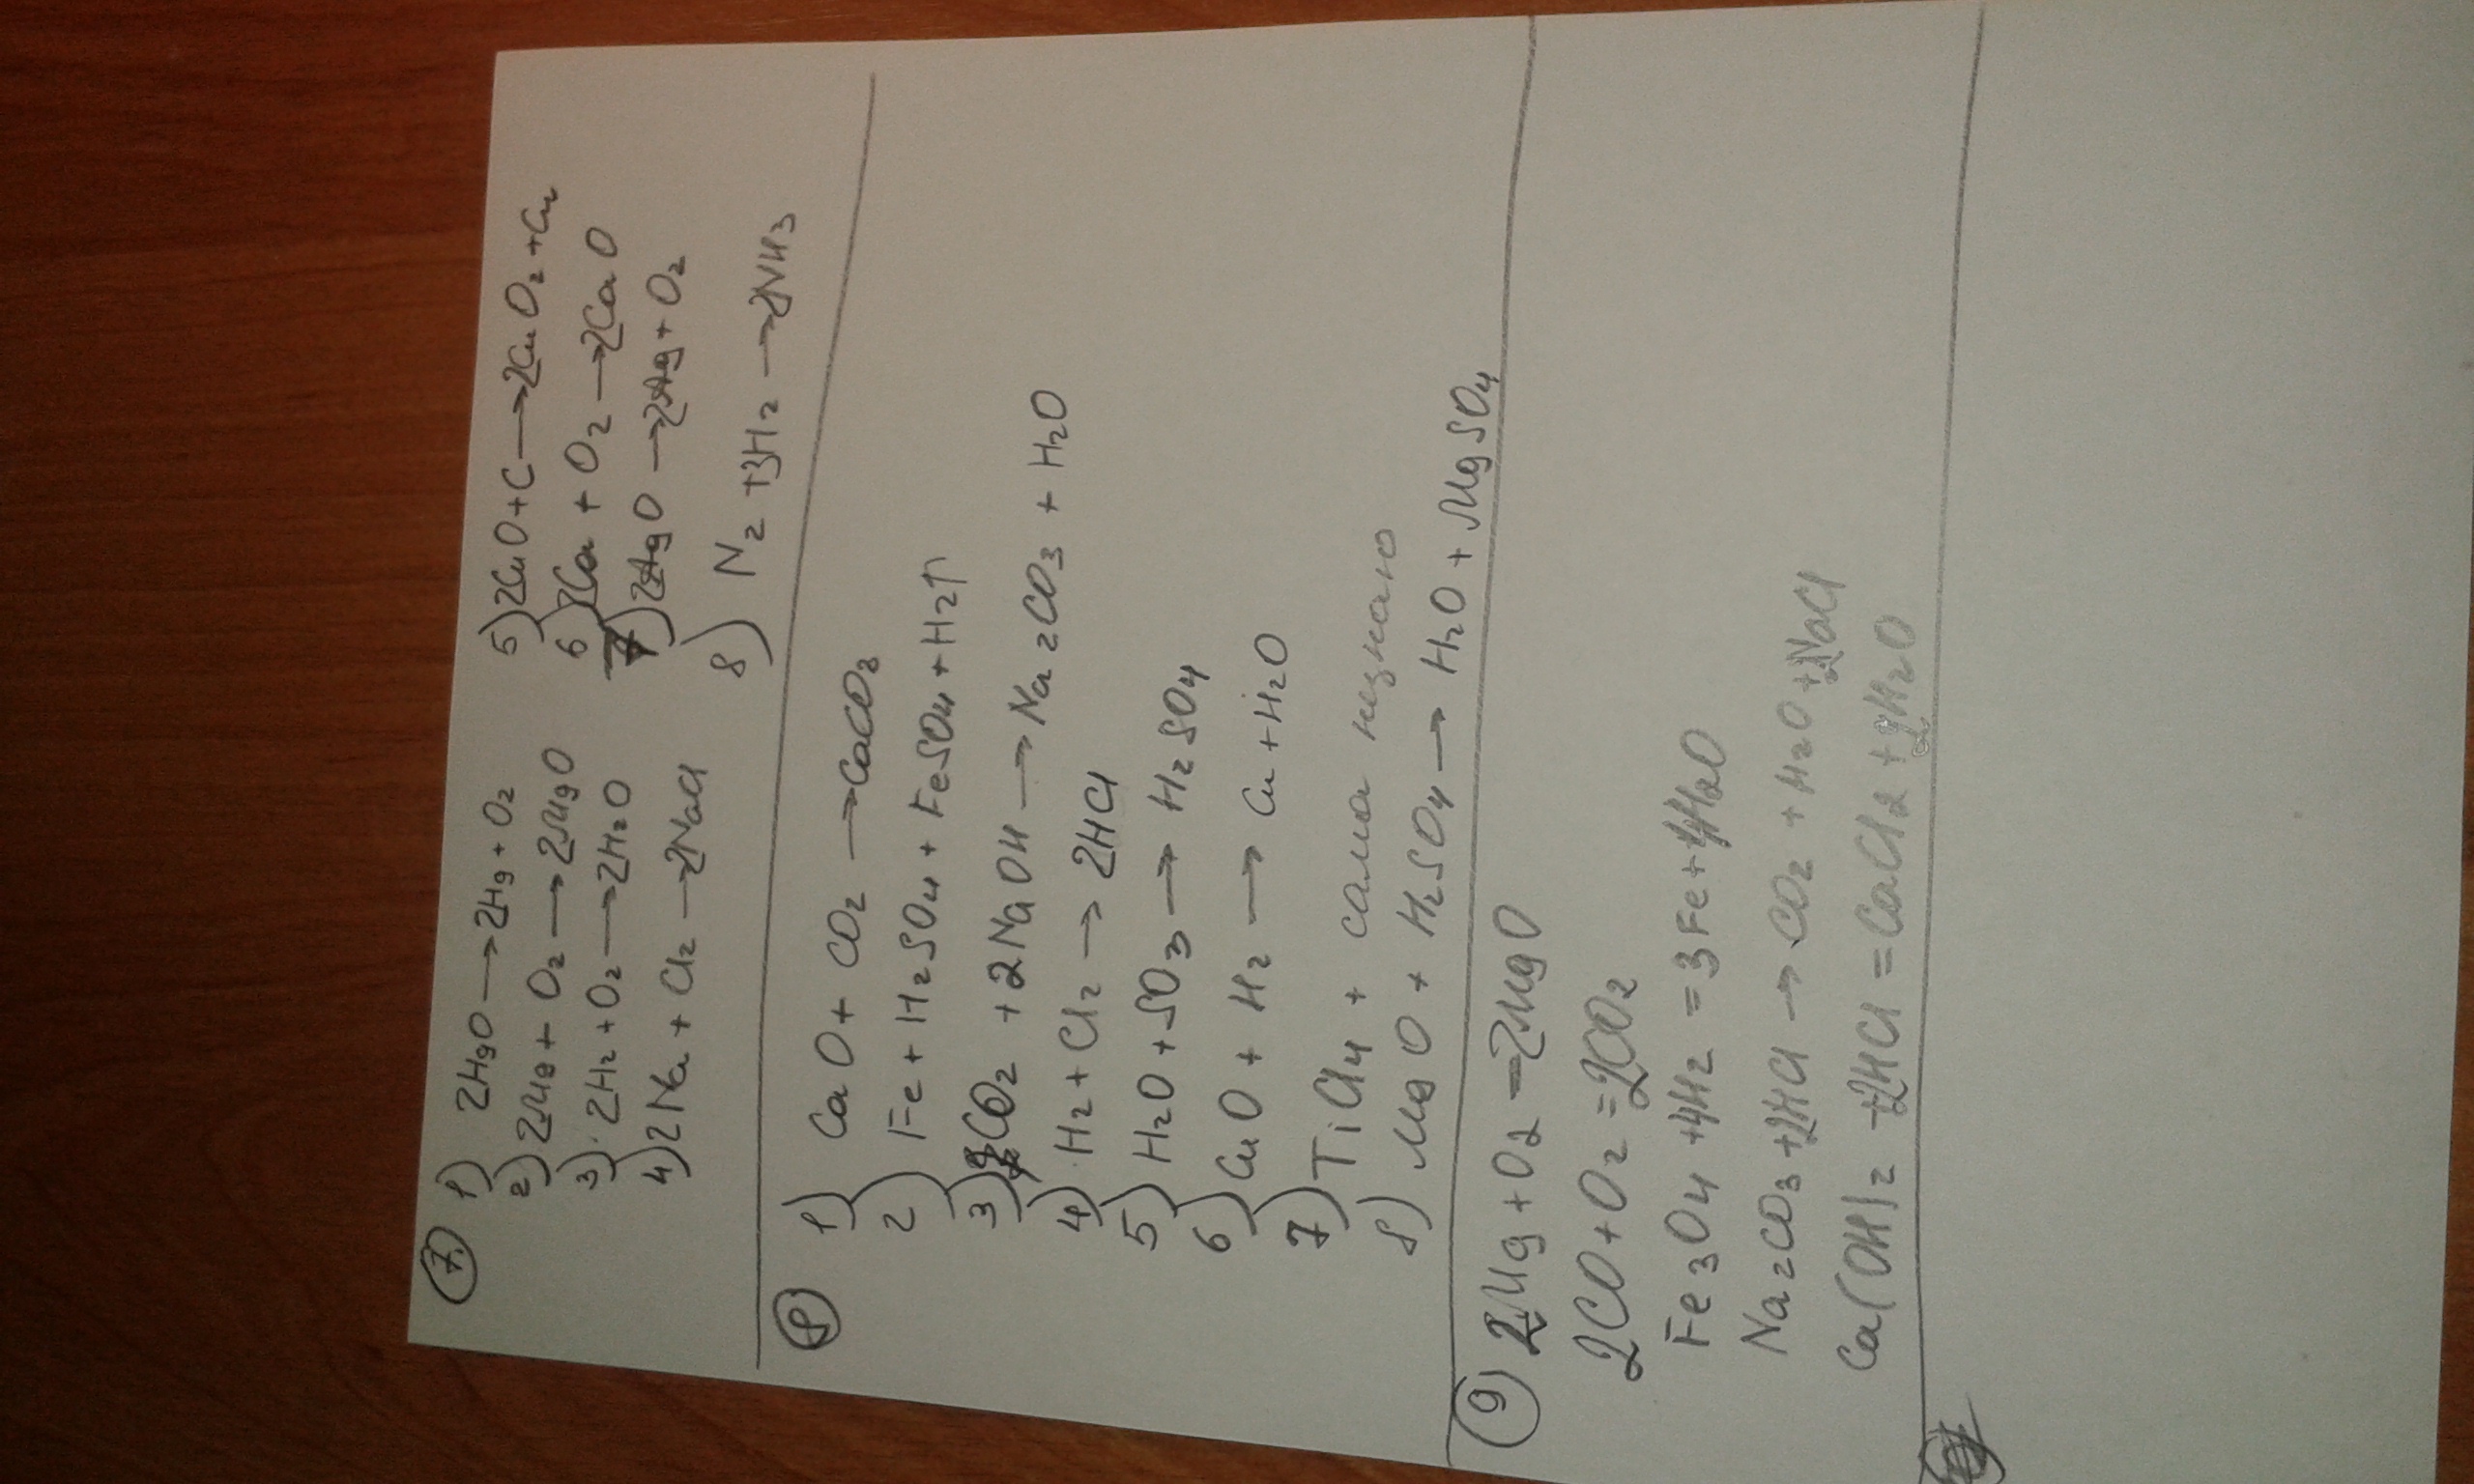 7
1) 2HgO → 2Hg + O₂
2) 2Mg + O₂ → 2MgO
3) 2H₂ + O₂ → 2H₂O
4) 2Na + Cl₂ → 2NaCl
5) 2CuO + C → 2CuO₂ + Cu
6) 2Ca + O₂ → 2CaO
7) 2AgO → 2Ag + O₂
8) N₂ + 3H₂ → 2NH₃
8
1) CaO + CO₂ → CaCO₃
2) Fe + H₂SO₄ + FeSO₄ + H₂↑
3) CO₂ + 2NaOH → Na₂CO₃ + H₂O
4) H₂ + Cl₂ → 2HCl
5) H₂O + SO₃ → H₂SO₄
6) CuO + H₂ → Cu + H₂O
7) TiCl₄ + сама незнаю
8) MgO + H₂SO₄ → H₂O + MgSO₄
9 2Mg + O₂ → 2MgO
2CO + O₂ = 2CO₂
Fe₃O₄ + 4H₂ = 3Fe + 4H₂O
Na₂CO₃ + 2HCl → CO₂ + H₂O + 2NaCl
Ca(OH)₂ + 2HCl = CaCl₂ + 2H₂O